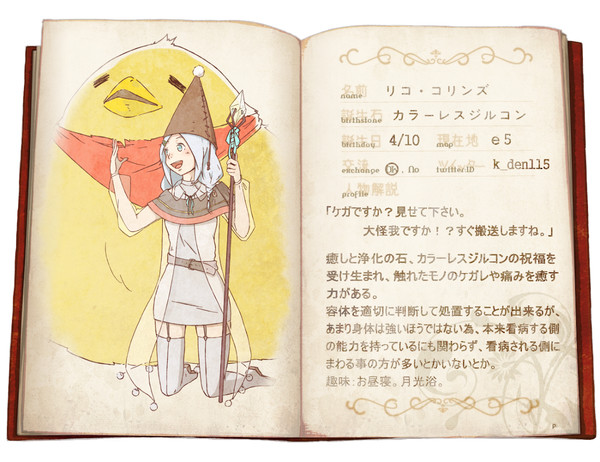 名前 name リコ・コリンズ
誕生石 birthstone カラーレスジルコン
誕生日 birthday 4/10 現在地 map e5
交流 exchange OK . No ツイッター twitter ID k_den115
人物解説 profile
「ケガですか?見せて下さい。
大怪我ですか!?すぐ搬送しますね。」
癒しと浄化の石、カラーレスジルコンの祝福を
受け生まれ、触れたモノのケガレや痛みを癒す
力がある。
容体を適切に判断して処置することが出来るが、
あまり身体は強いほうではない為、本来看病する側
の能力を持っているにも関わらず、看病される側に
まわる事の方が多いとかいないとか。
趣味:お昼寝。月光浴。
P.